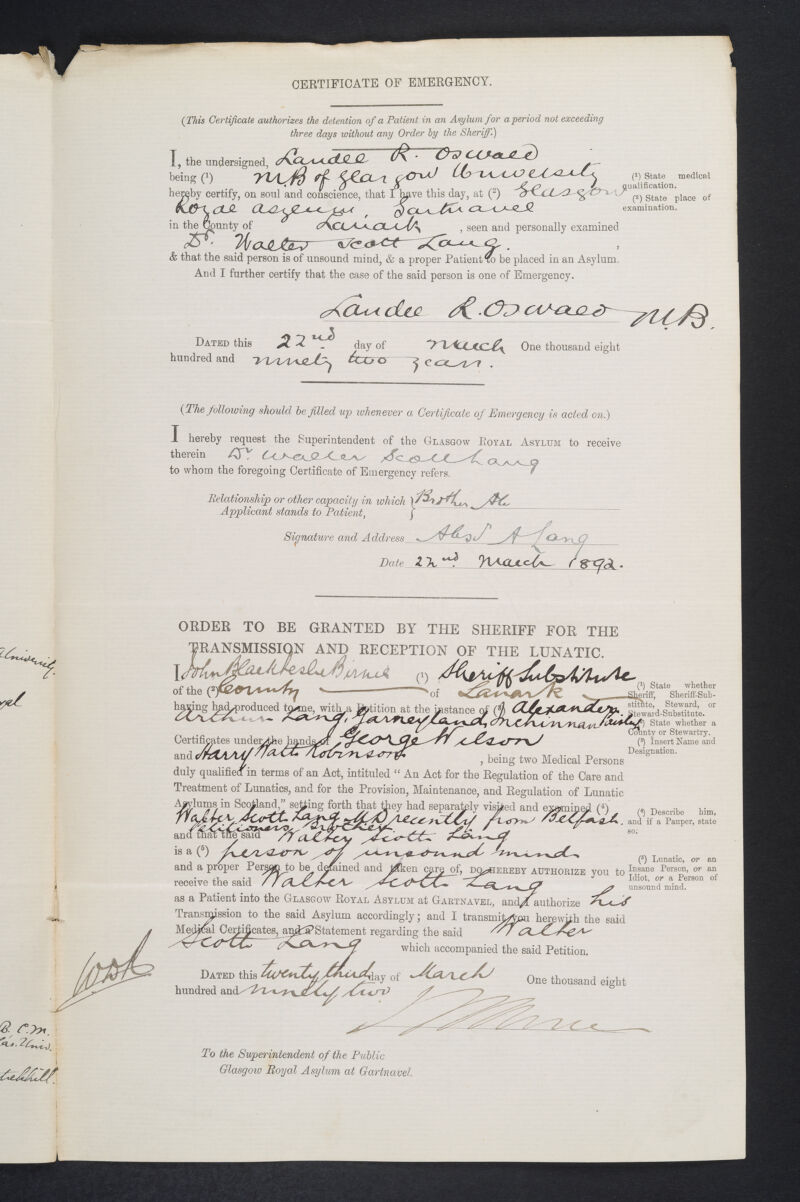 CERTIFICATE OF EMERGENCY.
(This Certificate authorizes the detention of a Patient in an Asylum for a period not exceeding
three days without any Order by the Sheriff.)
I, the undersigned, Landel R. Oswald
being (¹) M.B of Glasgow University
(¹) State medical
qualification.
hereby certify, on soul and conscience, that I have this day, at (²) Glasgow
(²) State place of
examination.
Royal Asylum, Gartnavel
in the County of Lanark, seen and personally examined
Dr. Walter Scott Lang.,
& that the said person is of unsound mind, & a proper Patient to be placed in an Asylum.
And I further certify that the case of the said person is one of Emergency.
Landel R. Oswald M.B.
DATED this 22nd day of March One thousand eight
hundred and ninety two years.
(The following should be filled up whenever a Certificate of Emergency is acted on.)
I hereby request the Superintendent of the GLASGOW ROYAL ASYLUM to receive
therein Dr Walter Scott Lang
to whom the foregoing Certificate of Emergency refers.
Relationship or other capacity in which } Brother
Applicant stands to Patient,
Signature and Address Alexr A Lang
Date 22nd March 1892.
ORDER TO BE GRANTED BY THE SHERIFF FOR THE
TRANSMISSION AND RECEPTION OF THE LUNATIC.
I, John Black Leslie Birnie (¹) Sheriff Substitute
(¹) State whether
Sheriff, Sheriff-Sub-
stitute, Steward, or
Steward-Substitute.
of the (²) County of Lanark
(²) State whether a
County or Stewartry.
having had produced to me, with a Petition at the instance of (³) Alexander
Arthur Lang, Garneyland, Inchinnan Paisley
(³) Insert Name and
Designation.
Certificates under the hands of George Wilson
and Harry Watt Robinson, being two Medical Persons
duly qualified in terms of an Act, intituled "An Act for the Regulation of the Care and
Treatment of Lunatics, and for the Provision, Maintenance, and Regulation of Lunatic
Asylums in Scotland," setting forth that they had separately visited and examined (⁴)
(⁴) Describe him,
and if a Pauper, state
so.
Walter Scott Lang M.D recently from Belfast.
Petitioners Brother
and that the said Walter Scott Lang
is a (⁵) person of unsound mind
(⁵) Lunatic, or an
Insane Person, or an
Idiot, or a Person of
unsound mind.
and a proper Person to be detained and taken care of, DO HEREBY AUTHORIZE you to
receive the said Walter Scott Lang
as a Patient into the GLASGOW ROYAL ASYLUM AT GARTNAVEL, and I authorize his
Transmission to the said Asylum accordingly; and I transmit you herewith the said
Medical Certificates, and a Statement regarding the said Walter
Scott Lang which accompanied the said Petition.
DATED this twenty third day of March One thousand eight
hundred and ninety two
To the Superintendent of the Public
Glasgow Royal Asylum at Gartnavel.
University.
B. C.M.
Univ.